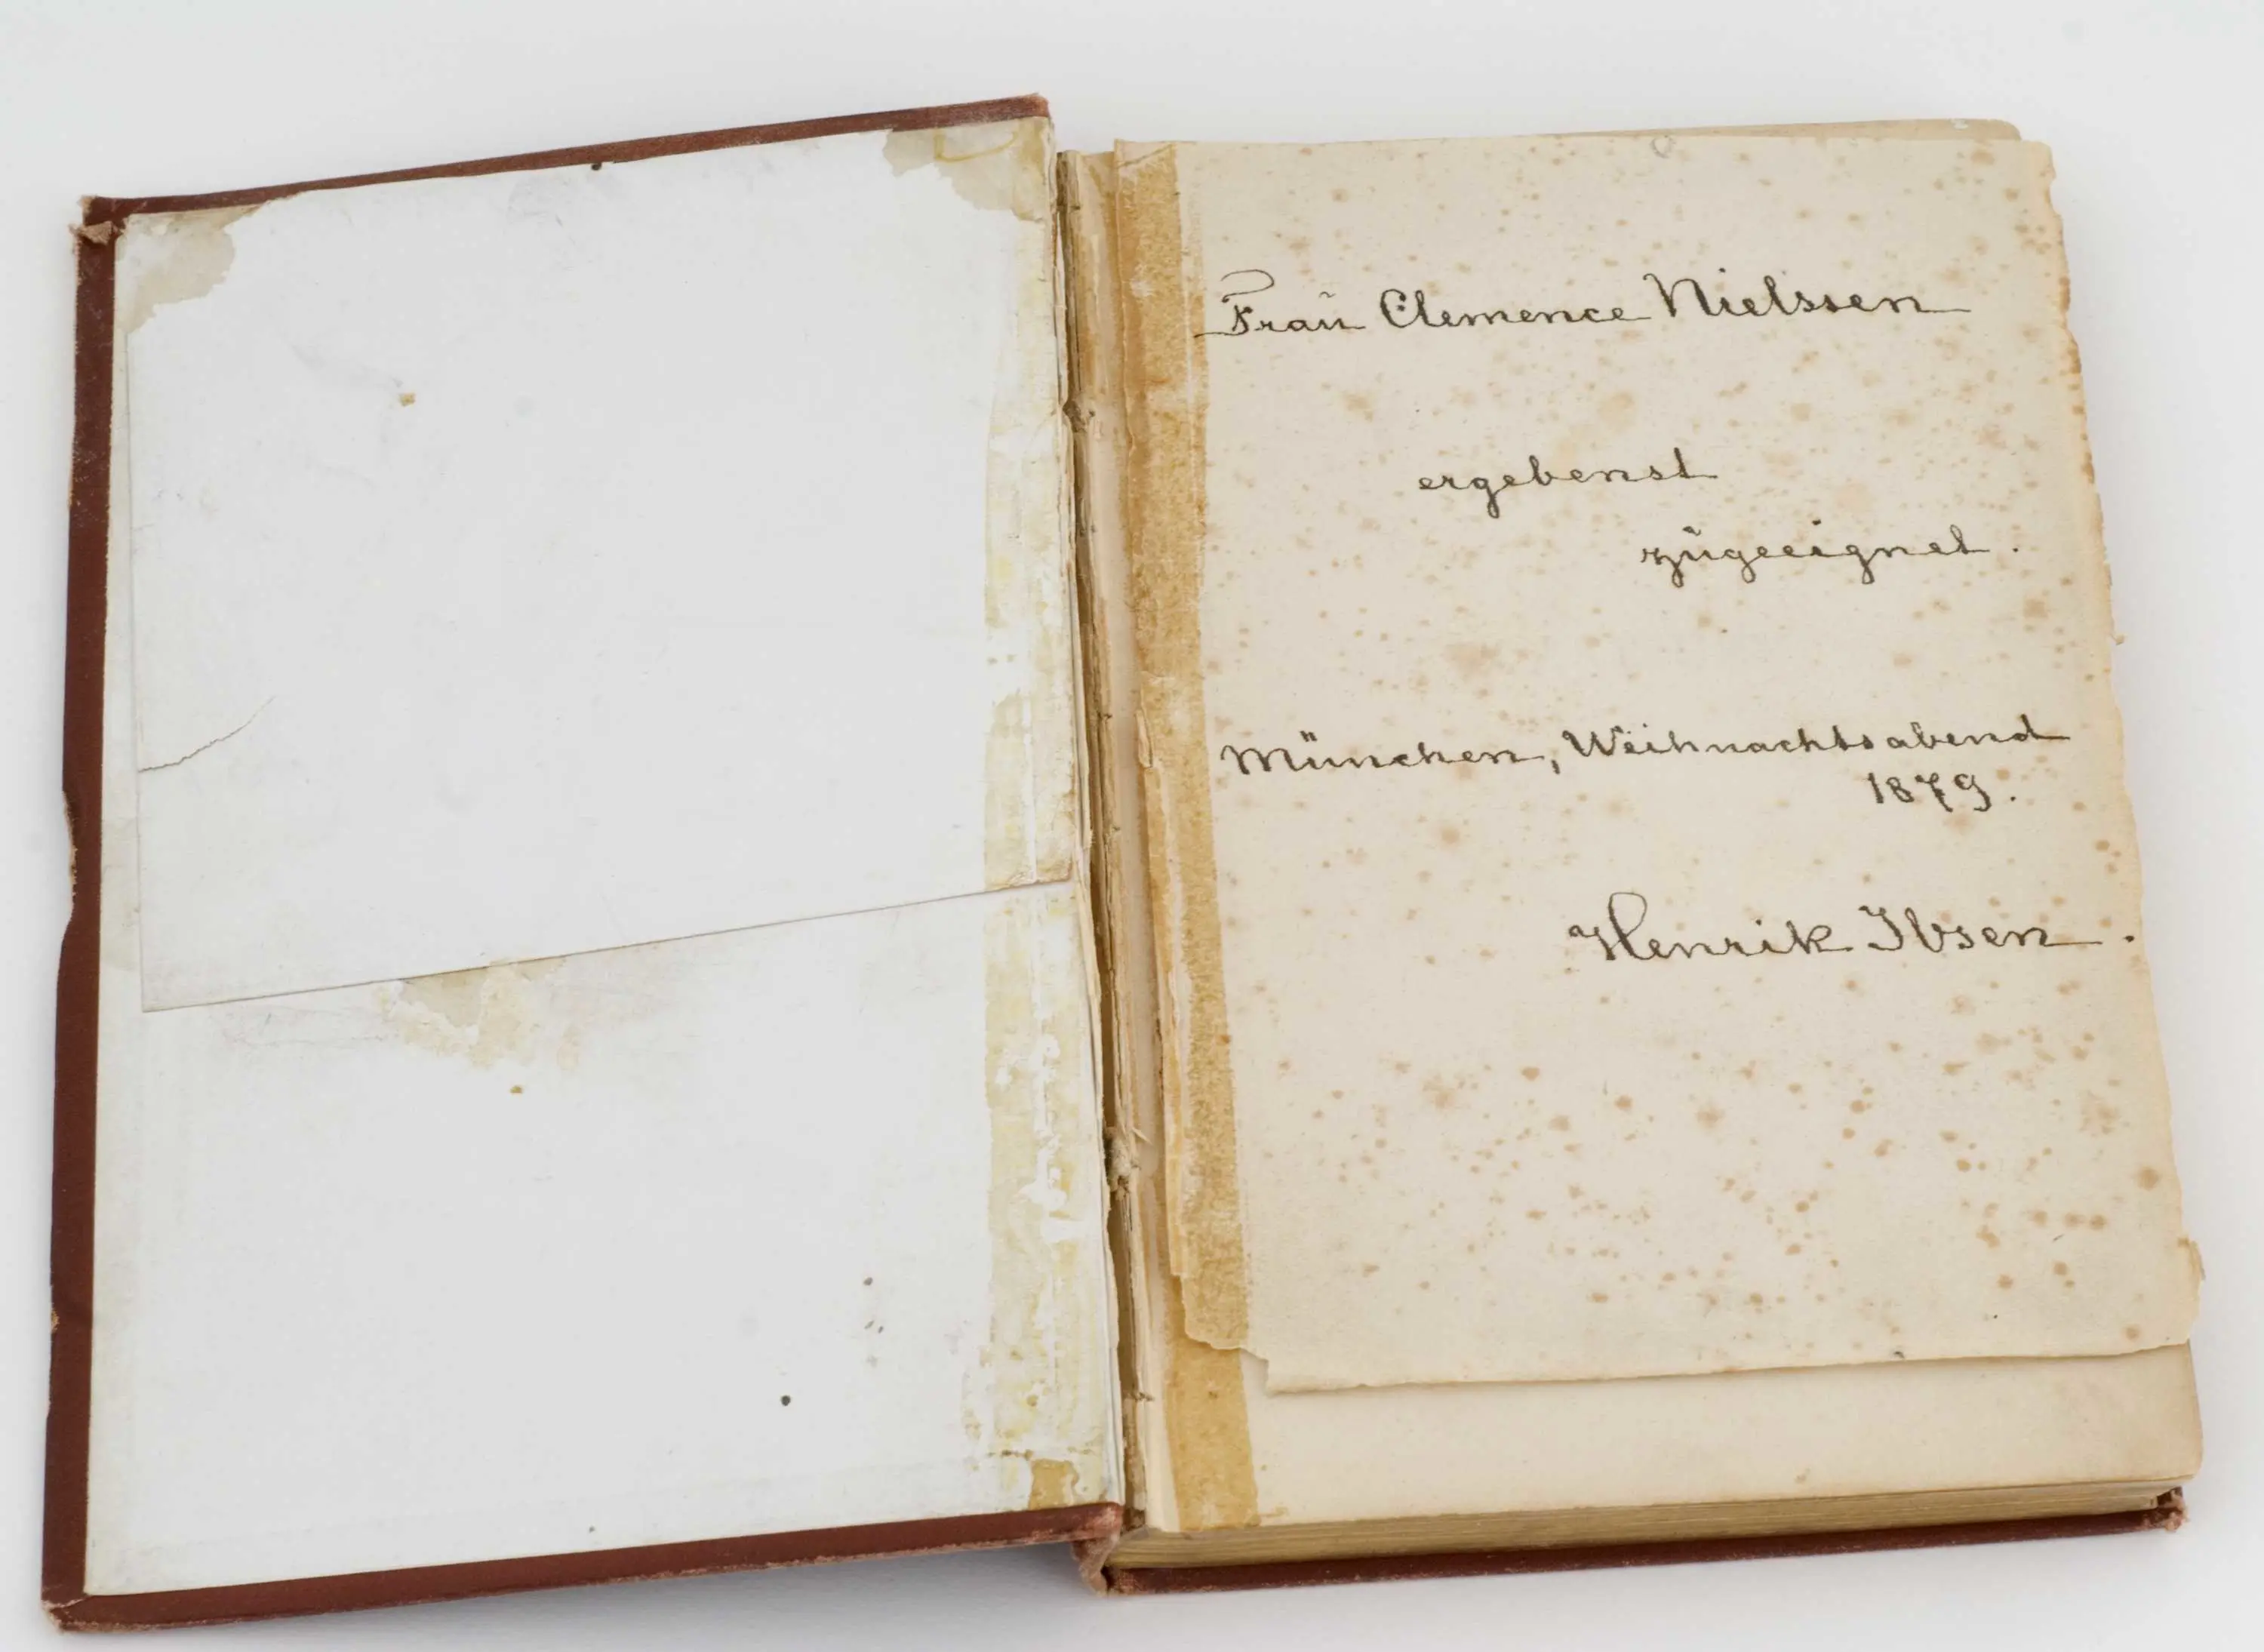 Frau Clemence Nielssen
ergebenst
zugeeignet.
München, Weihnachtsabend
1879.
Henrik Ibsen.